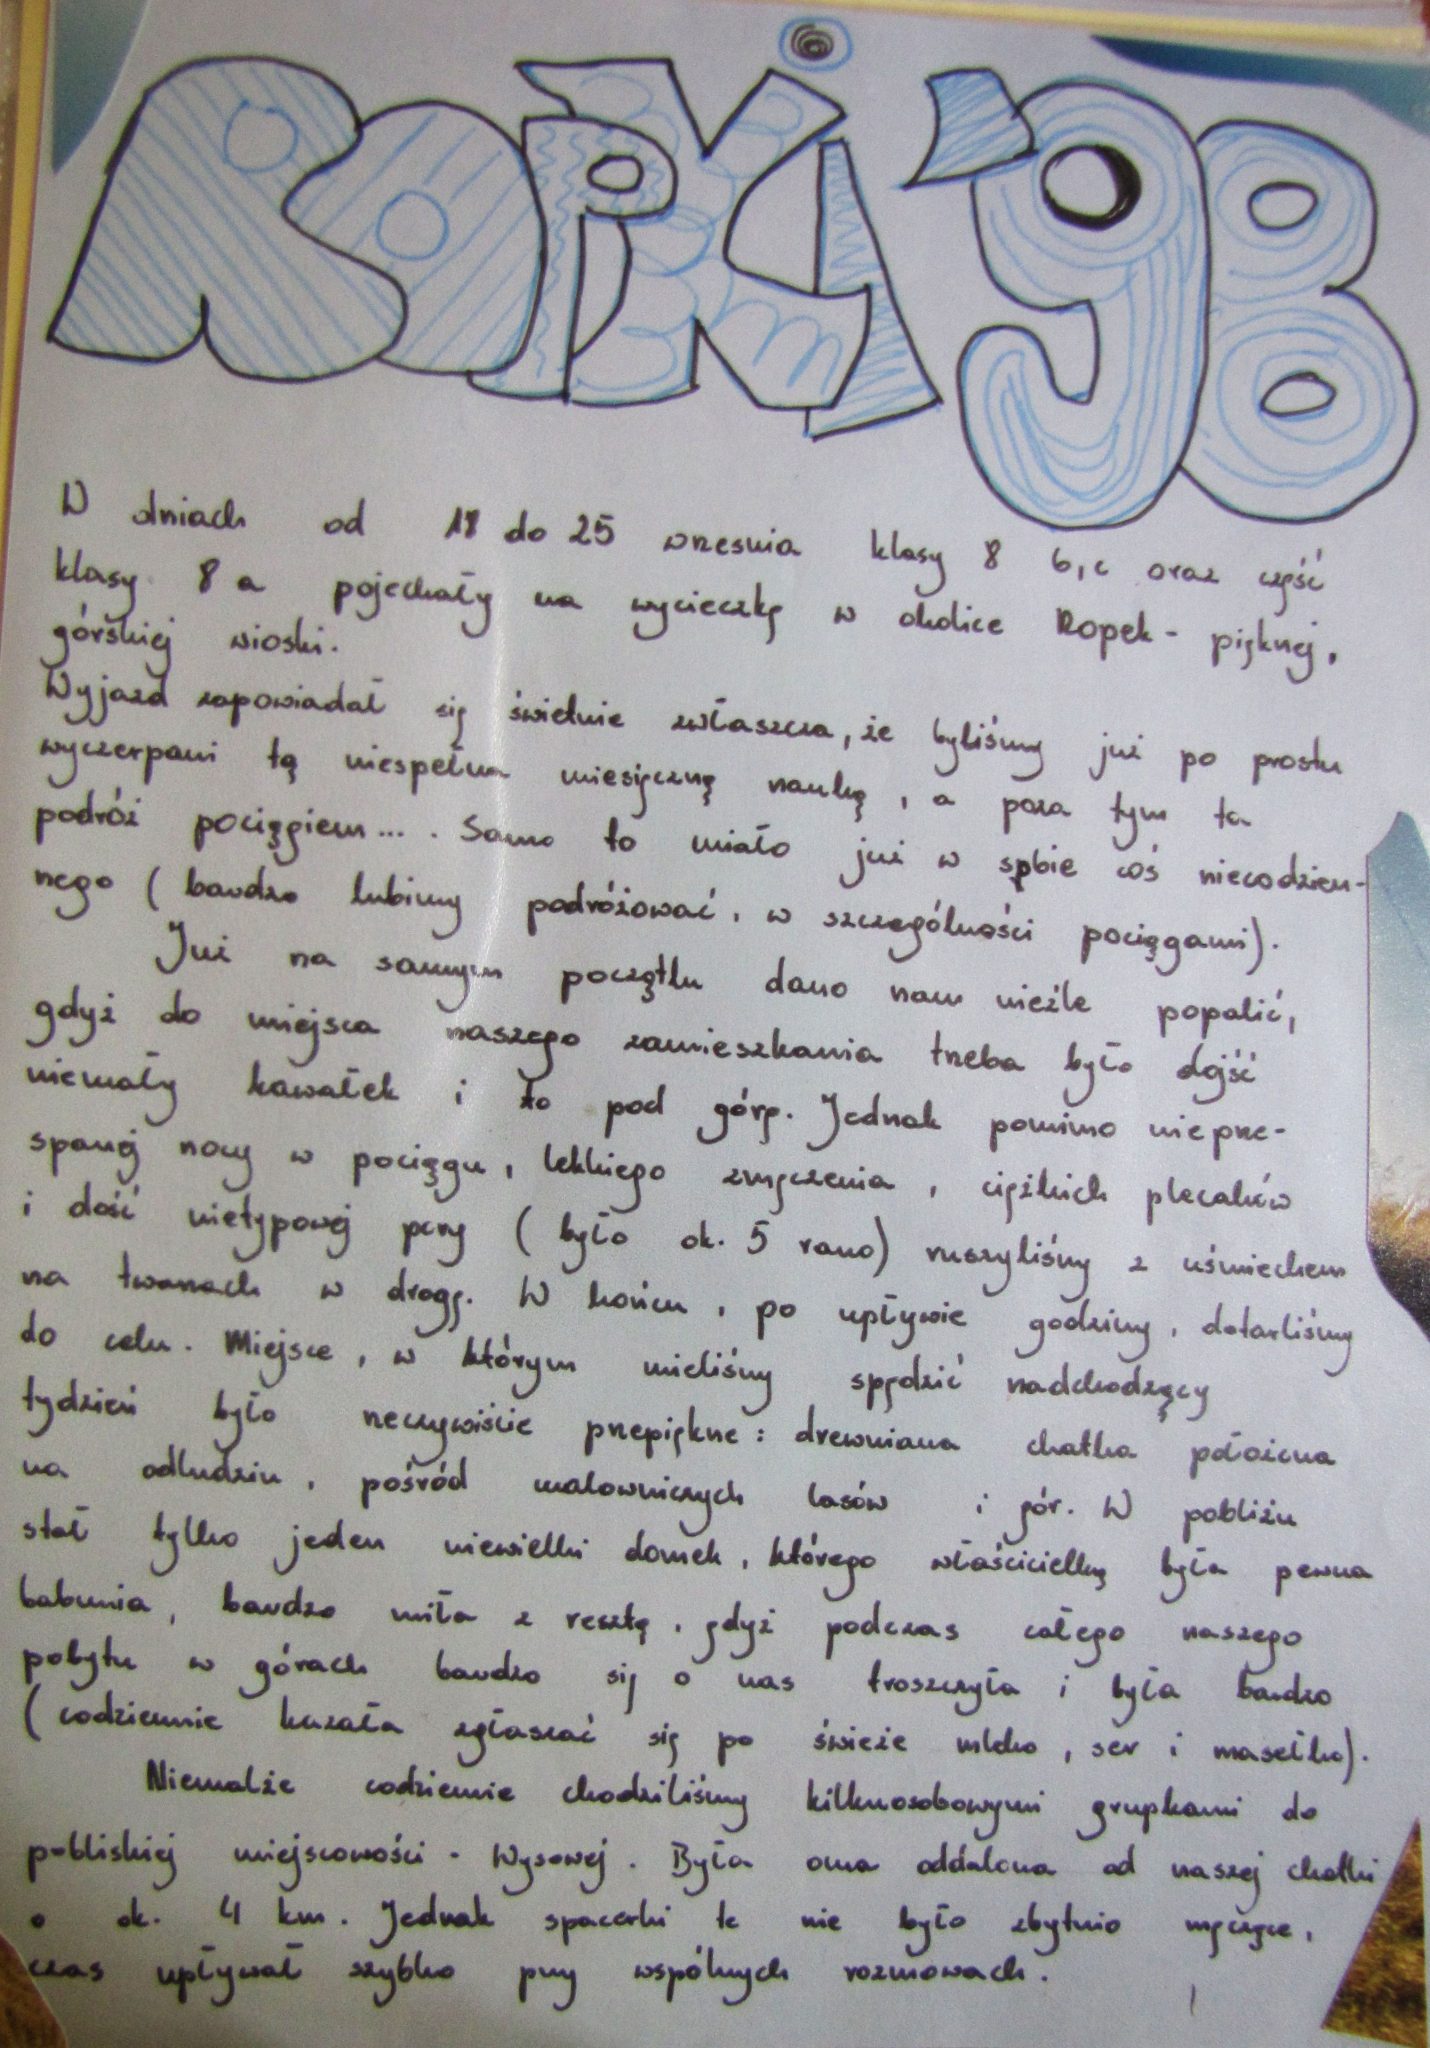 Ropki '98
W dniach od 18 do 25 wrzesnia klasy 8 b,c oraz część
klasy 8a pojechały na wycieczkę w okolice Ropek - pięknej,
górskiej wioski.
Wyjazd zapowiadał się świetnie zwłaszcza, że byliśmy już po prostu
wyczerpani tą niespełna miesięczną nauką, a poza tym ta
podróż pociągiem.... Samo to miało już w sobie coś niecodzien-
nego (bardzo lubimy podróżować, w szczególności pociągami).
Już na samym początku dano nam nieźle popalić,
gdyż do miejsca naszego zamieszkania trzeba było dojść
niemały kawałek i to pod górę. Jednak pomimo nieprze-
spanej nocy w pociągu, lekkiego zmęczenia, ciężkich plecaków
i dość nietypowej pory (było ok. 5 rano) ruszyliśmy z uśmiechem
na twarzach w drogę. W końcu, po upływie godziny, dotarliśmy
do celu. Miejsce, w którym mieliśmy spędzić nadchodzący
tydzień było rzeczywiście przepiękne: drewniana chatka położona
na odludziu, pośród malowniczych lasów i gór. W pobliżu
stał tylko jeden niewielki domek, którego właścicielką była pewna
babunia, bardzo miła z resztą, gdyż podczas całego naszego
pobytu w górach bardzo się o nas troszczyła i była bardzo
(codziennie kazała zgłaszać się po świeże mleko, ser i masełko).
Niemalże codziennie chodziliśmy kilkuosobowymi grupkami do
pobliskiej miejscowości - Wysowej. Była ona oddalona od naszej chatki
o ok. 4 km. Jednak spacerki te nie było zbytnio męczące,
czas upływał szybko przy wspólnych rozmowach.